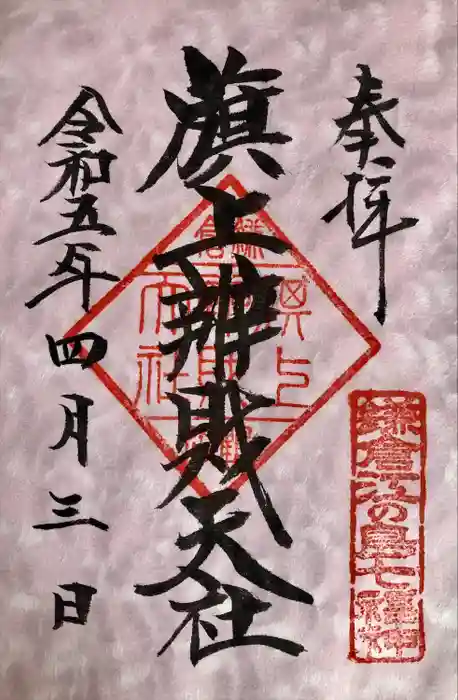 奉拝
鎌倉江の島七福神
旗上辨財天社
令和五年四月三日